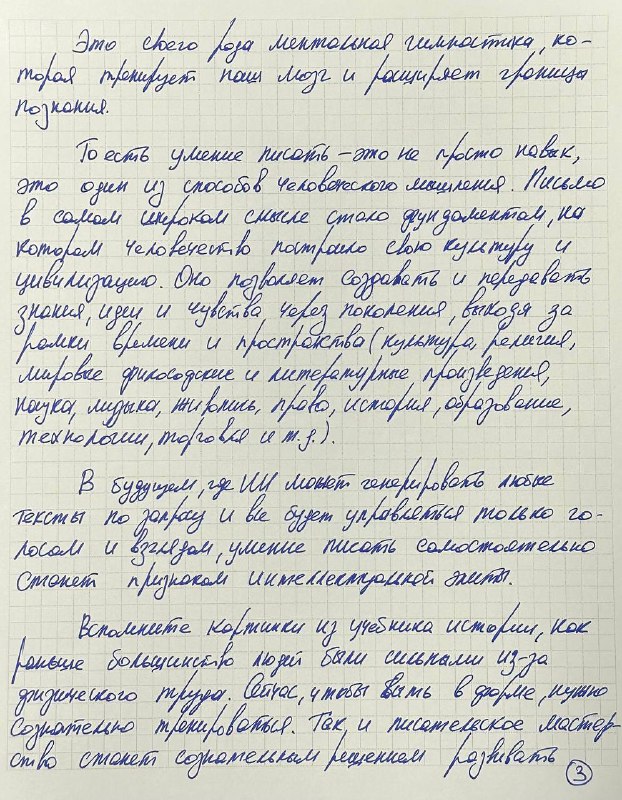 Это своего рода ментальная гимнастика, ко-
торая тренирует наш мозг и расширяет границы
познания.
То есть умение писать – это не просто навык,
это один из способов человеческого мышления. Письмо
в самом широком смысле стало фундаментом, на
котором человечество построило свою культуру и
цивилизацию. Оно позволяет создавать и передавать
знания, идеи и чувства через поколения, выходя за
рамки времени и пространства (культура, религия,
мировые философские и литературные произведения,
наука, музыка, живопись, право, история, образование,
технологии, торговля и т.д.).
В будущем, где ИИ может генерировать любые
тексты по запросу и все будет управляться только го-
лосом и взглядом, умение писать самостоятельно
станет признаком интеллектуальной элиты.
Вспомните картинки из учебника истории, как
раньше большинство людей были сильными из-за
физического труда. Сейчас, чтобы быть в форме, нужно
сознательно тренироваться. Так, и писательское мастер-
ство станет сознательным решением развивать
3